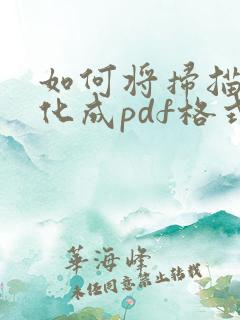 如何将扫描
化成pdf格式
華海峰
未经同意禁止转载